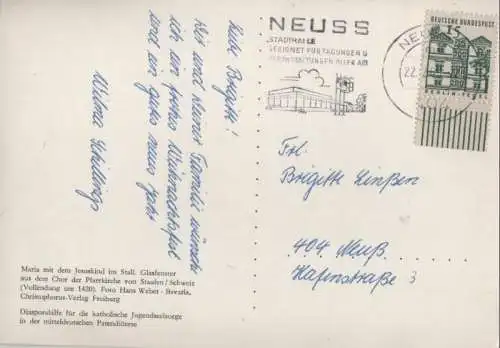 Liebe Brigitte!
Dir und Deiner Familie wünsche
ich ein frohes Weihnachtsfest
und ein gutes neues Jahr!
Wilma Schillings
Maria mit dem Jesuskind im Stall. Glasfenster
aus dem Chor der Pfarrkirche von Staufen / Schweiz
(Vollendung um 1420). Foto Hans Weber - Bavaria,
Christophorus-Verlag Freiburg
Diasporahilfe für die katholische Jugendseelsorge
in der mitteldeutschen Patendiözese
NEUSS
STADTHALLE
GEEIGNET FÜR TAGUNGEN U
VERANSTALTUNGEN ALLER ART
22.
DEUTSCHE BUNDESPOST
15
Frl.
Brigitte Linßen
404 Neuß
Hafenstraße 3